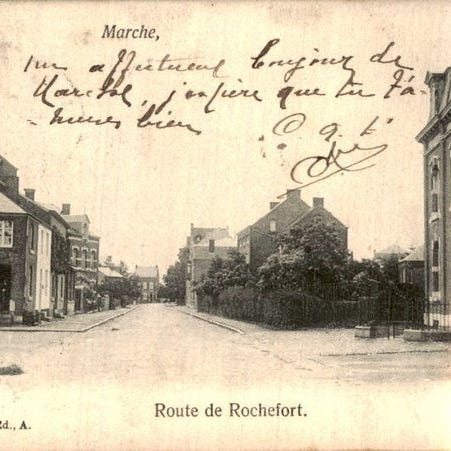 Marche,
un affectueux bonjour de
Marche, j'espère que tu t'a-
muses bien
Route de Rochefort.
Ed., A.